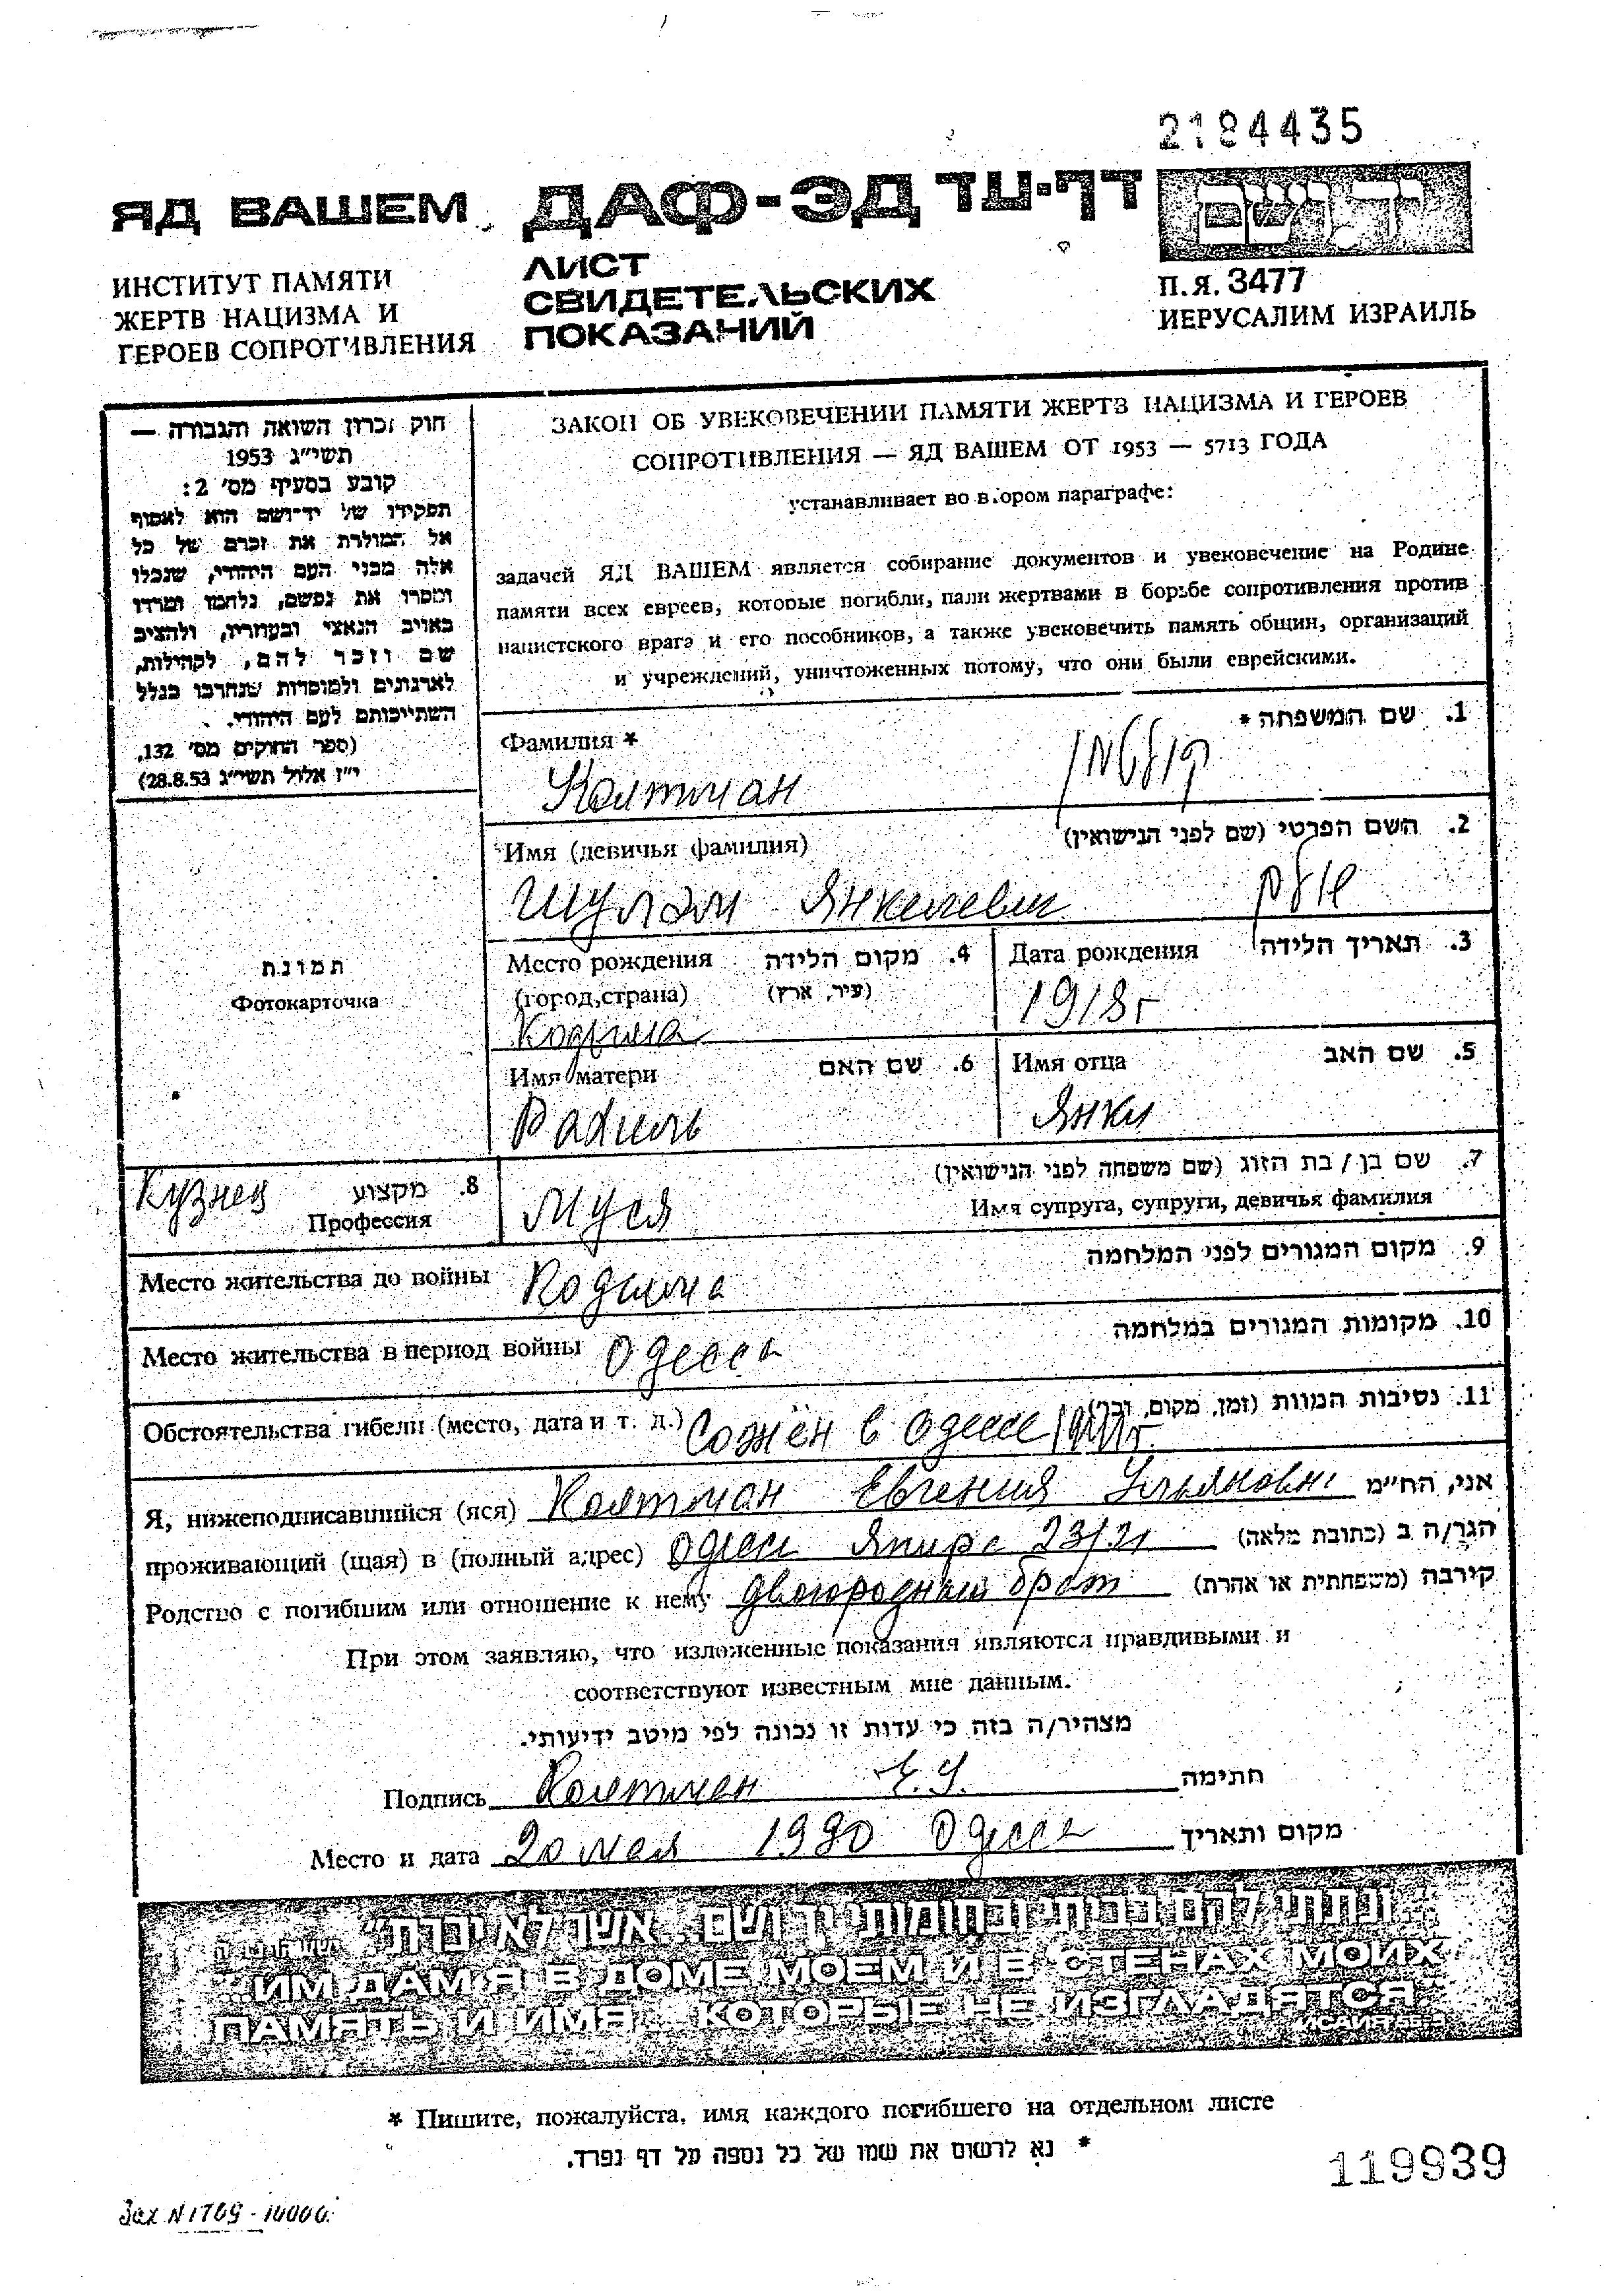 2184435
ЯД ВАШЕМ
ДАФ-ЭД דף-עד
יד ושם
ИНСТИТУТ ПАМЯТИ
ЖЕРТВ НАЦИЗМА И
ГЕРОЕВ СОПРОТИВЛЕНИЯ
ЛИСТ
СВИДЕТЕЛЬСКИХ
ПОКАЗАНИЙ
П.Я. 3477
ИЕРУСАЛИМ ИЗРАИЛЬ
חוק זכרון השואה והגבורה —
תשי״ג 1953
קובע בסעיף מס׳ 2:
תפקידו של יד־ושם הוא לאסוף
אל המולדת את זכרם של כל
אלה מבני העם היהודי, שנפלו
ומסרו את נפשם, נלחמו ומרדו
באויב הנאצי ובעוזריו, ולהציב
שם וזכר להם, לקהילות,
לארגונים ולמוסדות שנחרבו בגלל
השתייכותם לעם היהודי.
(ספר החוקים מס׳ 132,
י״ז אלול תשי״ג 28.8.53)
ЗАКОН ОБ УВЕКОВЕЧЕНИИ ПАМЯТИ ЖЕРТВ НАЦИЗМА И ГЕРОЕВ
СОПРОТИВЛЕНИЯ — ЯД ВАШЕМ ОТ 1953 — 5713 ГОДА
устанавливает во втором параграфе:
задачей ЯД ВАШЕМ является собирание документов и увековечение на Родине
памяти всех евреев, которые погибли, пали жертвами в борьбе сопротивления против
нацистского врага и его пособников, а также увековечить память общин, организаций
и учреждений, уничтоженных потому, что они были еврейскими.
Фамилия * 1. שם המשפחה *
Колтман קולטמן
Имя (девичья фамилия) 2. השם הפרטי (שם לפני הנישואין)
Шулэм Янкелевич
תמונת
Фотокарточка
Место рождения 4. מקום הלידה
(город, страна) (עיר, ארץ)
Кодыма
Дата рождения 3. תאריך הלידה
1918г
Имя матери 6. שם האם
Рахиль
Имя отца 5. שם האב
Янки
Кузнец 8. מקצוע
Профессия
7. שם בן / בת הזוג (שם משפחה לפני הנישואין)
Муся Имя супруга, супруги, девичья фамилия
Место жительства до войны Кодыма 9. מקום המגורים לפני המלחמה
Место жительства в период войны Одесса 10. מקומות המגורים במלחמה
Обстоятельства гибели (место, дата и т. д.) Сожжён в Одессе 1941г. 11. נסיבות המוות (זמן, מקום, וכו׳)
Я, нижеподписавшийся (яся) Колтман Евгения Ульяновна אני, הח״מ
проживающий (щая) в (полный адрес) Одесса Якира 23/21 הגר/ה ב (כתובת מלאה)
Родство с погибшим или отношение к нему двоюродный брат קירבה (משפחתית או אחרת)
При этом заявляю, что изложенные показания являются правдивыми и
соответствуют известным мне данным.
מצהיר/ה בזה כי עדות זו נכונה לפי מיטב ידיעותי.
Подпись Колтман Е.У. חתימה
Место и дата 20 мая 1990 Одесса מקום ותאריך
״...ונתתי להם בביתי ובחומותי יד ושם... אשר לא יכרת״
״...ИМ ДАМ Я В ДОМЕ МОЕМ И В СТЕНАХ МОИХ
ПАМЯТЬ И ИМЯ... КОТОРЫЕ НЕ ИЗГЛАДЯТСЯ״
ИСАЙЯ
* Пишите, пожалуйста, имя каждого погибшего на отдельном листе
* נא לרשום את שמו של כל נספה על דף נפרד.
119939
Зак N 1769 - 10000.